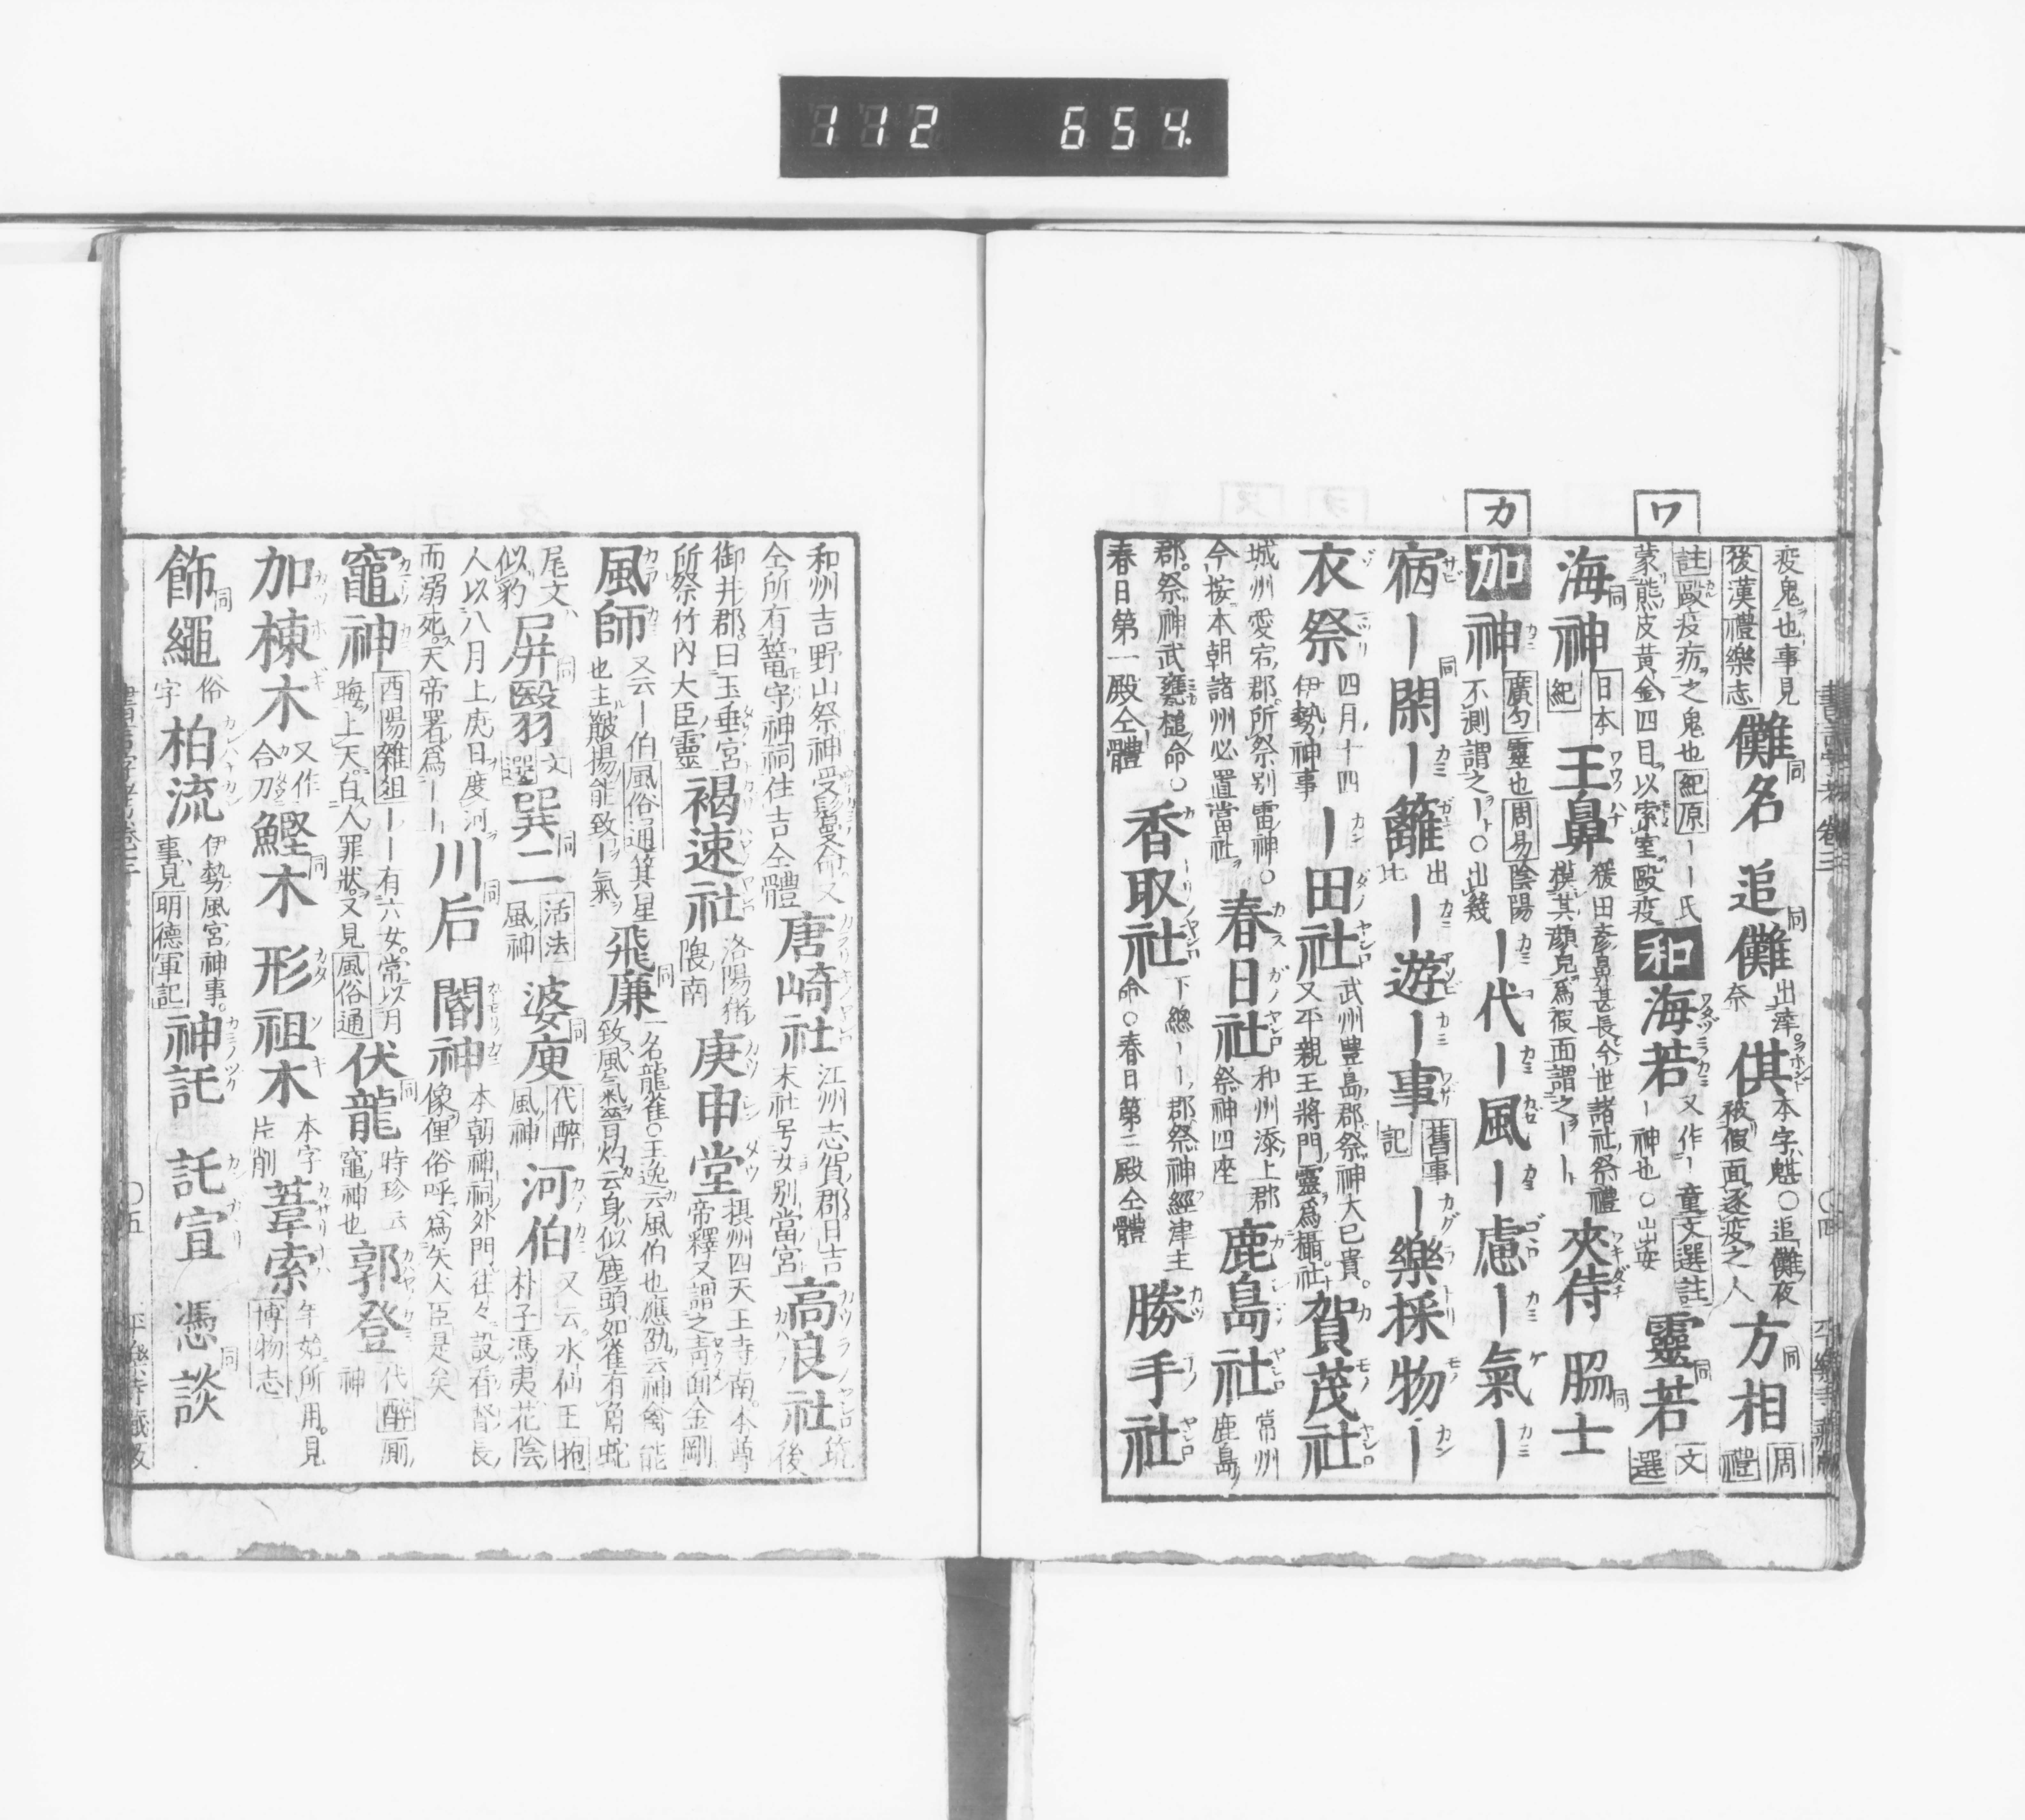 112 654.
ワ
カ
疫鬼也事見
後漢禮樂志
儺名 同
追儺 同
出津
奈
供
本字魌○追儺夜
被假面逐疫之人
方相 同
周
禮
註毆疫疥之鬼也紀原ーー氏
蒙熊皮黃金四目以索室毆疫
和
海若
又作ー童文選註
ー神也○山出安
靈若 同
文
選
海神 同
日本
紀
王鼻
猨田彥鼻甚長今世諸社祭禮
摸其顏見爲假面謂之ーー
夾侍
脇士 同
加
神
廣勻靈也周易陰陽
不測謂之ー○出幾
ー代
ー風
ー慮
ー氣
ー
ー閑 同
ー籬
出
比
ー遊
ー事
舊事
記
ー樂
採物
ー
衣祭
四月十四
伊勢神事
ー田社
武州豊島郡祭神大已貴
又平親王將門靈爲攝社
賀茂社
城州愛宕郡所祭別雷神○
今按本朝諸州必置當社
春日社
和州添上郡
祭神四座
鹿島社
常州
鹿島
郡祭神武甕槌命○
春日第一殿仝體
香取社
下總ーー郡祭神經津主
命○春日第二殿仝體
勝手社
和州吉野山祭神受鬘命又
仝所有篭守神祠住吉仝體
唐崎社
江州志賀郡日吉
末社号女別當宮
高良社
筑
後
御井郡曰玉垂宮
所祭竹内大臣靈
褐速社
洛陽猪
隈南
庚申堂
摂州四天王寺南本尊
帝釋又謂之靑面金剛
風師
又云ー伯風俗通箕星
也主皷揚能致ー氣
飛廉 同
一名龍雀○王逸云風伯也應劭云神禽能
致風氣晉灼云身似鹿頭如雀有角蛇
尾文
似豹
屏翳 同
文
選
巽二 同
活法
風神
婆㢏 同
代醉
風神
河伯
又云水仙王抱
朴子馮夷花陰
人以八月上庚日度河
而溺死天帝署爲ーー
川后 同
閽神
本朝神祠外門往々設看督長
像俚俗呼爲矢大臣是矣
竈神
西陽雜俎ーー有六女常以月
晦上天白人罪狀又見風俗通
伏龍 同
時珍云
竈神也
郭登
代醉厠
神
加棟木
又作
合刀
鰹木 同
形祖木
本字
片削
葦索
年始所用見
博物志
飾繩 同
俗
字
柏流
伊勢風宮神事
事見明德軍記
神託
託宣
憑談 同